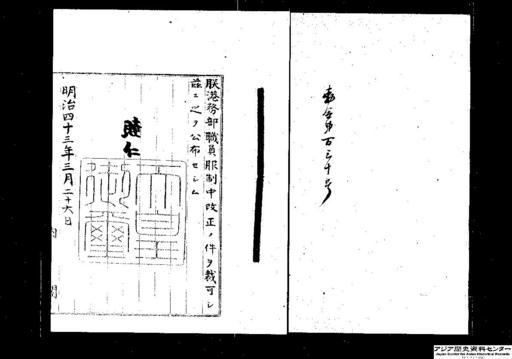 勅令第百三十号
朕港務部職員服制中改正ノ件ヲ裁可シ
茲ニ之ヲ公布セシム
睦仁
天皇御璽
明治四十三年三月二十六日
内閣
アジア歴史資料センター
Japan Center for Asian Historical Records